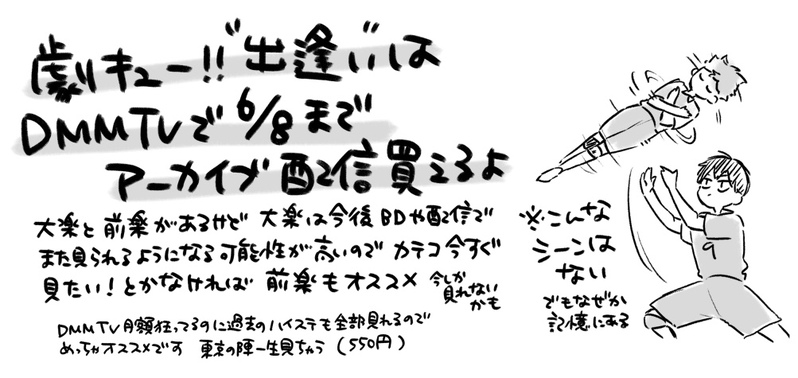 劇団キュー!!"出逢い"は
DMMTVで6/8まで
アーカイブ配信買えるよ
大楽と前楽があるけど 大楽は今後BDや配信で
また見られるようになる可能性が高いので カテコ今すぐ
見たい!とかなければ 前楽もオススメ 今しか
見れない
かも
DMMTV月額狂ってるのに過去のハイステも全部見れるので
めっちゃオススメです 東京の陣一生見ちゃう (550円)
※こんな
シーンは
ない
でもなぜか
記憶にある
9